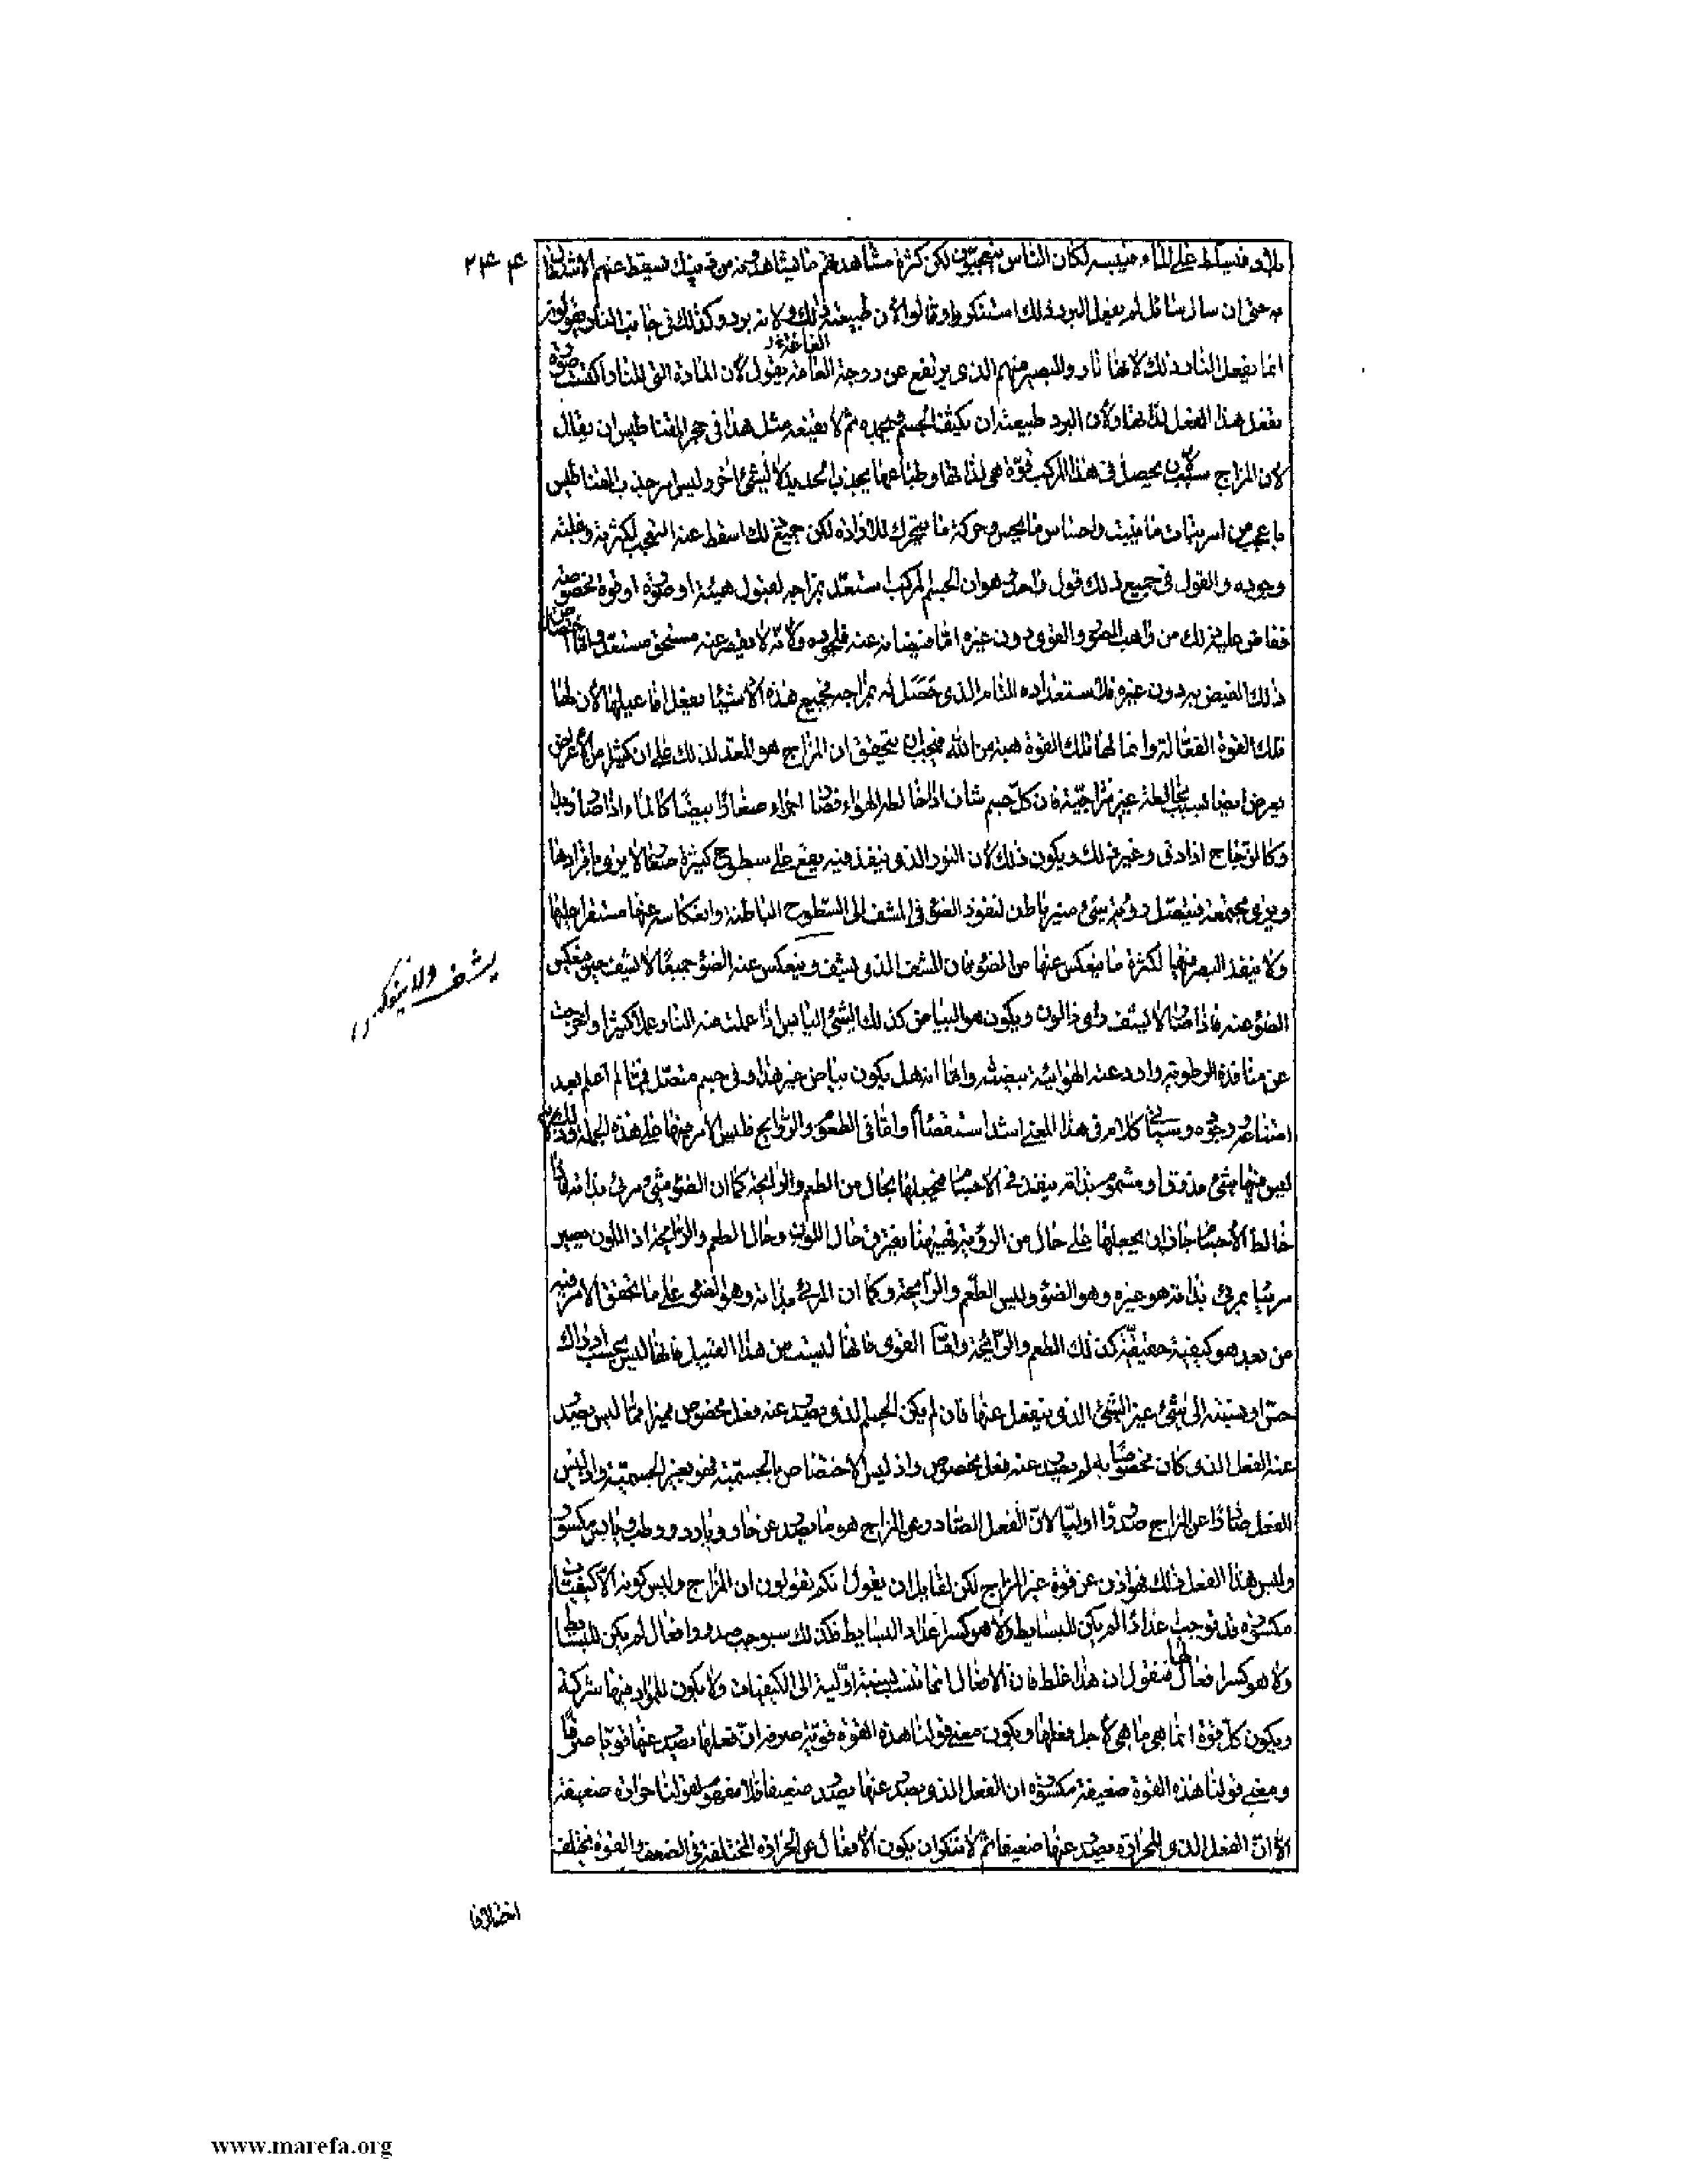 ۲۴۴
بلاد فيسلط على الماء فييبسه لكان الناس يتعجبون لكن كثرة مشاهدتهم ما يشاهدونه من قبيل ذلك يسقط عنهم الاشتغال
به حتى ان سال سائل لم يفعل البرد ذلك استنكروا وقالوا لأن طبيعته ذلك ولانه برد وكذلك فى جانب النار يقولون
انما يفعل النار ذلك لانها نار والبصير منهم الذى يرتفع عن درجة العامة يقول لأن المادة التى للنار اكتست صورة
يفعل هذا الفعل لذاتها ولأن البرد طبيعته ان يكثف الجسم ويجمده ثم لا يقنعه مثل هذا فى حجر المغناطيس ان يقال
لأن المزاج يحصل فى هذا المركب قوة هى لذاتها وطباعها يجذب الحديد لا لشئ اخر وليس امر جذب المغناطيس
باعجب من امر نبات ما ينبت واحساس ما يحس وحركة ما يتحرك بالارادة لكن جميع ذلك اسقط عنه التعجب لكثرته وغلبة
وجوده والقول فى جميع ذلك قول واحد وهو ان الجسم المركب استعد بمزاجه لقبول هيئة او صورة او قوة مخصوصة
ففاض عليه ذلك من واهب الصور والقوى دون غيره اما فيضانه عنه فلجوده ولأنه لا يقصر عنه مستحق مستعد واما اختصاص
ذلك الفيض به دون غيره فلاستعداده التام الذى حصل له بمزاجه فجميع هذه الأشياء يفعل افاعيلها لأن لها
تلك القوة الفعالة وانما لها تلك القوة هبة من الله فيجب ان يتحقق ان المزاج هو المعد لذلك على ان كثيرا من الأعراض
يعرض ايضا بسبب مخالطة غير مزاجية فان كل جسم شاف اذا خالطه الهواء فصار اجزاء صغارا ابيض كالماء اذا صار زبدا
وكالزجاج اذا دق وغير ذلك ويكون ذلك لان النور الذى ينفذ فيه يقع على سطوح كثيرة صغار لا يرى بافرادها
ويرى مجتمعة فيتصل رؤية شئ منير باطن لنفوذ الضوء فى المشف الى السطوح الباطنة وانعكاسه عنها مستقرا عليها
ولا ينفذ البصر فيها لكثرة ما ينعكس عنها من الضوء فان المشف الذى يشف وينعكس عنه الضوء جميعا لا يشف حين ينعكس
الضوء عنه فاذا صار لا يشف رأى ذا لون ويكون هو البياض كذلك الشئ اليابس اذا عملت منه النار عملا كثيرا واخرجت
عن منافذه الرطوبة واودعته الهوائية بيضته واما انه هل يكون بياض غير هذا وفى جسم متصل فمما لم اعلم بعد
امتناعه ووجوده وسيأتى كلام فى هذا المعنى اشد استقصاء واما فى الطعوم والروائح فليس الأمر فيها على هذه الجملة وذلك لانه
ليس فيها شئ مذوق او مشموم بذاته ينفذ فى الأجسام فيجعلها بحال من الطعم والرائحة كما ان الضوء شئ مرئى بذاته فاذا
خالط الأجسام جاز ان يجعلها على حال من الرؤية فههنا يفترق حال اللون وحال الطعم والرائحة اذ اللون يصير
مرئيا بمرئى بذاته هو غيره وهو الضوء وليس الطعم والرائحة وكما ان المرئى بذاته وهو الضوء على ما تحقق الامر فيه
من بعد هو كيفية حقيقية كذلك الطعم والرائحة واما القوى فانها ليست من هذا القبيل فانها ليس بحسب ادراك
حس او نسبة الى شئ غير الشئ الذى ينفعل عنها فان لم يكن الجسم الذى يصدر عنه فعل مخصوص مميزا مما ليس يصدر
عنه الفعل الذى كان مخصوصا به لم يصدر عنه فعل مخصوص واذ ليس الاختصاص بالجسمية فهو بغير الجسمية واذ ليس
الفعل صادرا عن المزاج صدورا اوليا لان الفعل الصادر عن المزاج هو ما يصدر عن حار وبارد ورطب ويابس مكسور
وليس هذا الفعل ذلك فهو اذن عن قوة غير المزاج لكن لقائل ان يقول انكم تقولون ان المزاج وليس كونه الا كيفيات
مكسورة قد توجب عدادا لم يكن للبسايط ولا هو كسر اعداد البسايط فكذلك سيوجب صدور افعال لم يكن للبسايط
ولا هو كسر افعالها فنقول ان هذا غلط فان الافعال انما تنسب نسبة اولية الى الكيفيات ولا يكون للمواد فيها شركة
ويكون كل قوة انما هى ما هى لاجل فعلها ويكون معنى قولنا هذه القوة قوية صرفة ان فعلها يصدر عنها قويا صرفا
ومعنى قولنا هذه القوة ضعيفة مكسورة ان الفعل الذى يصدر عنها يصدر ضعيفا فلا مفهوم لقولنا حرارة ضعيفة
الا ان الفعل الذى للحرارة يصدر عنها ضعيفا ثم لا ننكر ان يكون الأفعال عن الحرارة المختلفة فى الضعف والقوة يختلف
اختلافا
يشف ولا
www.marefa.org